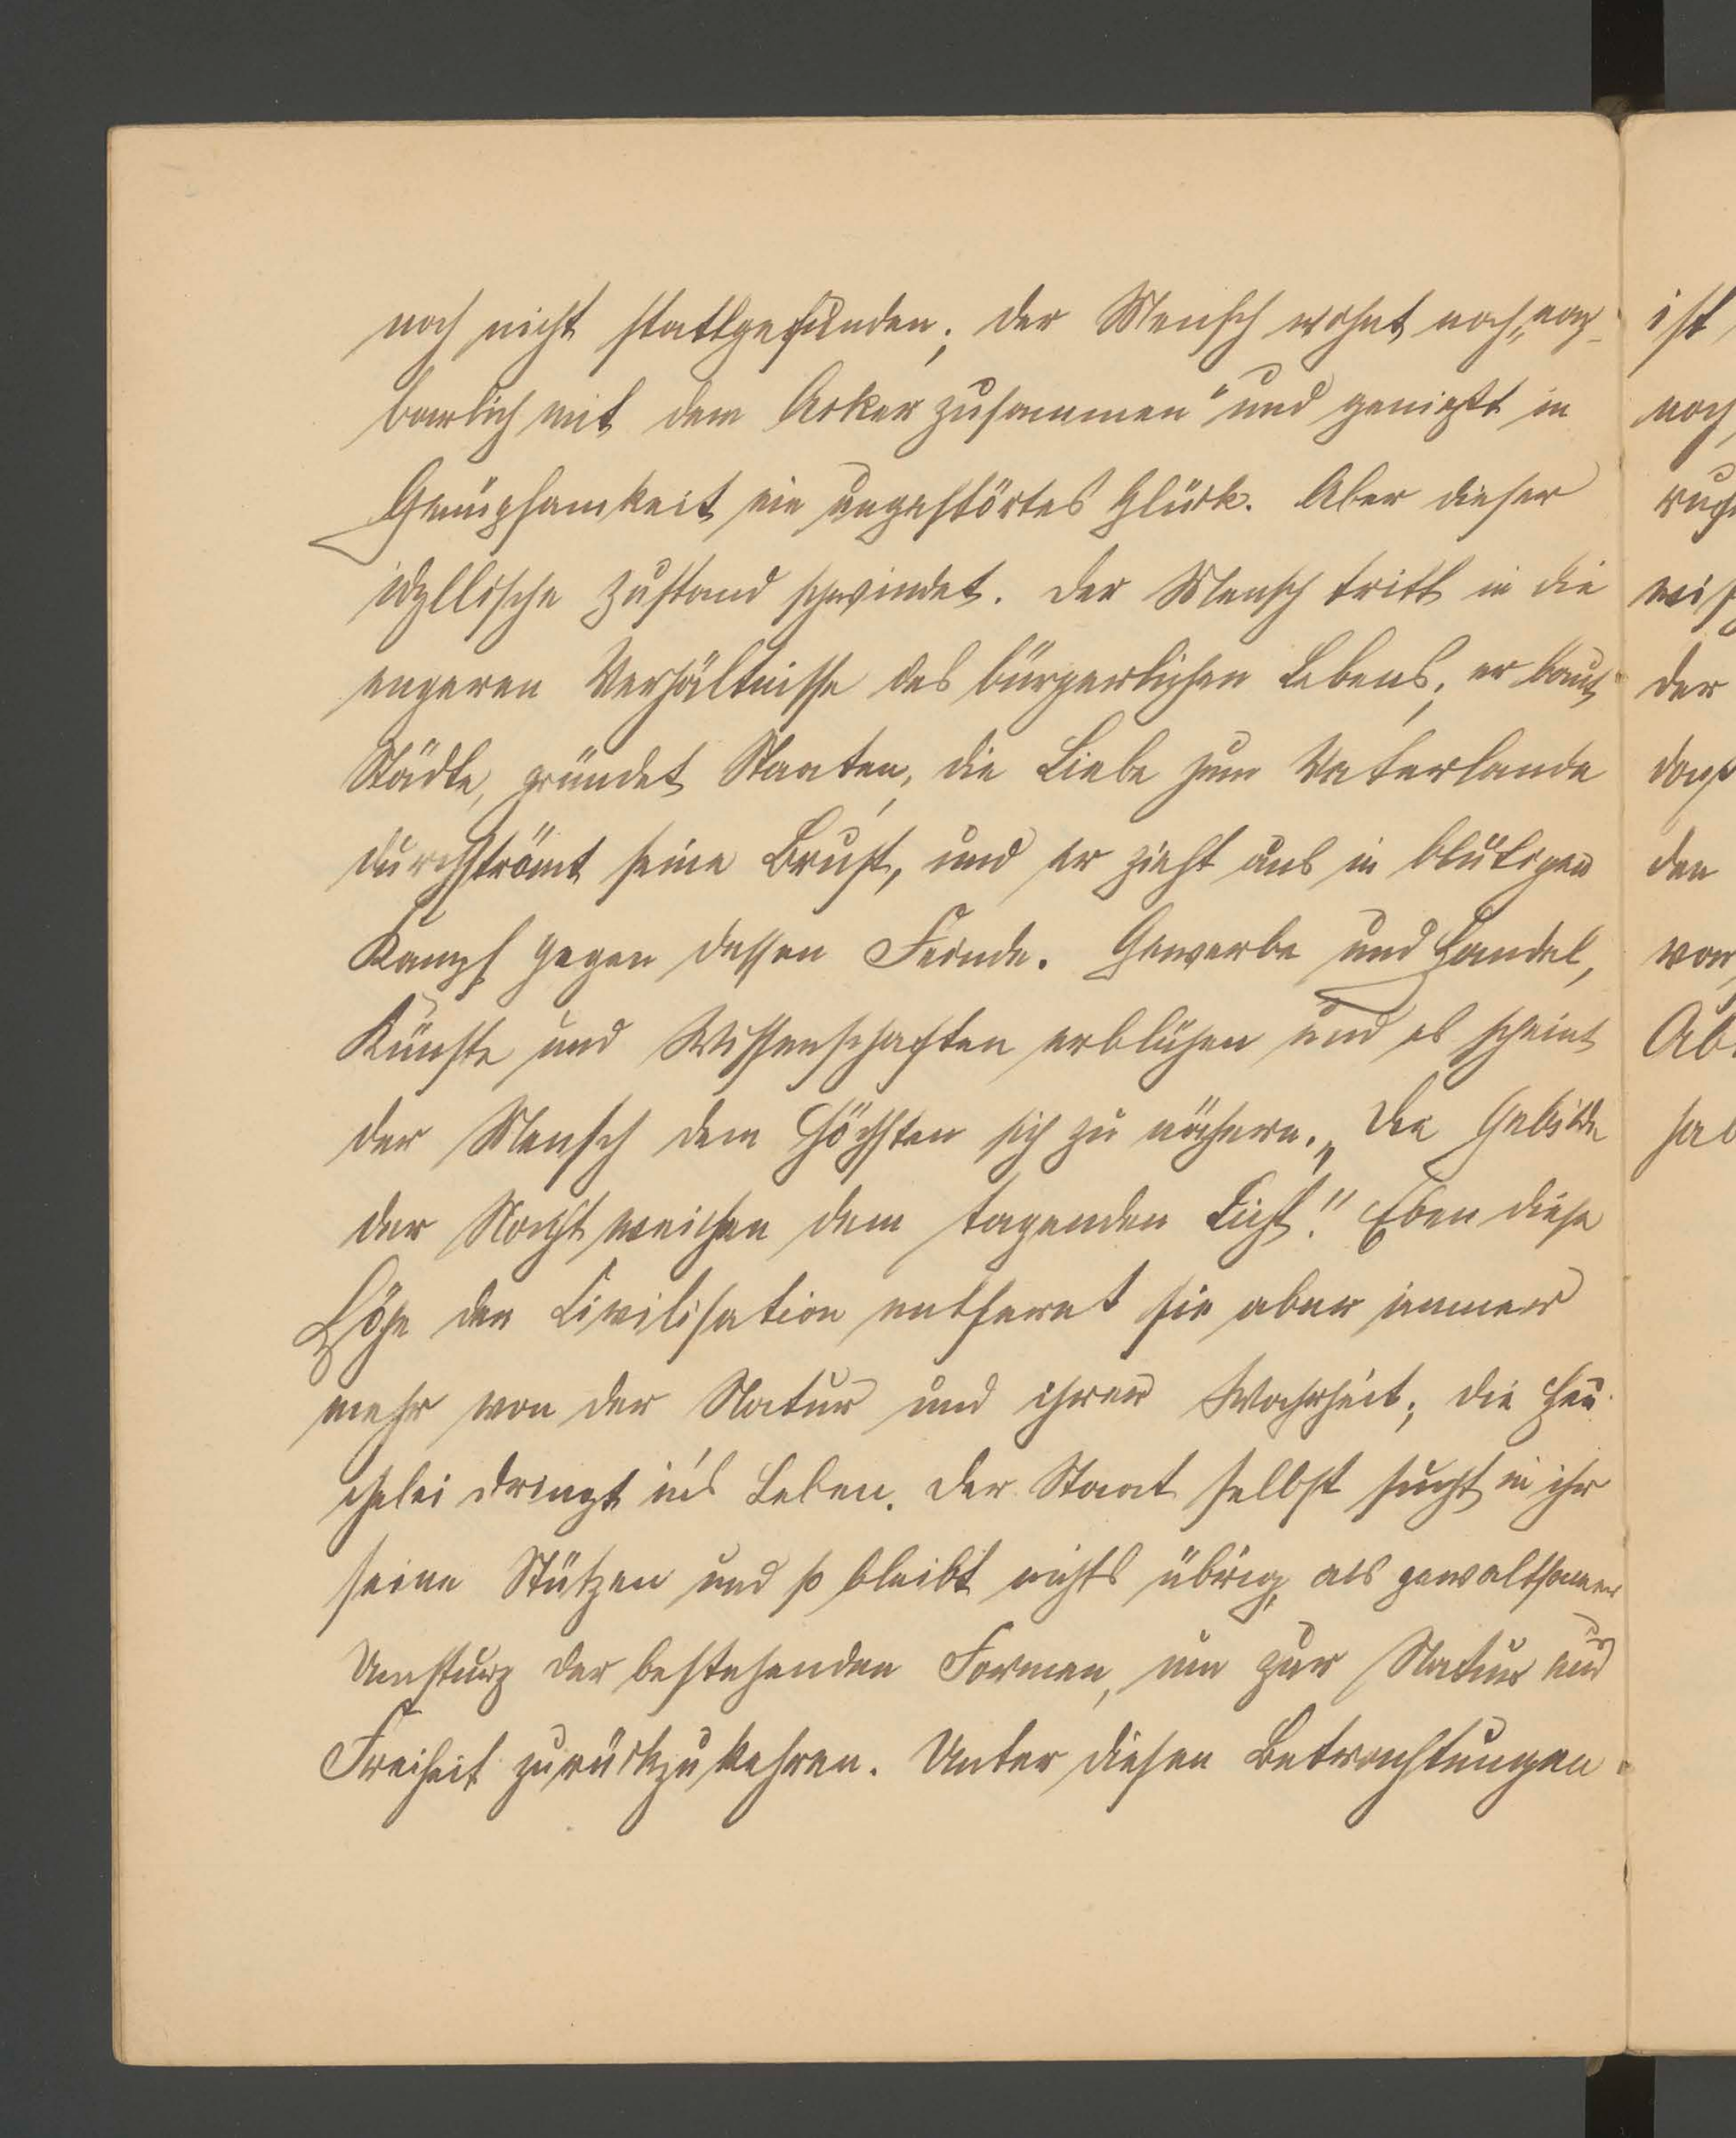 noch nicht stattgefunden; der Mensch wohnt noch „nach-
barlich mit dem Acker zusammen" und genießt in
Genügsamkeit ein ungestörtes Glück. Aber dieser
idyllische Zustand schwindet. Der Mensch tritt in die
engeren Verhältnisse des bürgerlichen Lebens; er baut
Städte, gründet Staaten, die Liebe zum Vaterlande
durchströmt seine Brust, und er zieht aus in blutigen
Kampf gegen dessen Feinde. Gewerbe und Handel,
Künste und Wissenschaften erblühen und es scheint
der Mensch dem Höchsten sich zu nähern. „Die Gebilde
der Nacht weichen dem tagenden Licht!" Eben diese
Höhe der Civilisation entfernt sie aber immer
mehr von der Natur und ihrer Wahrheit; die Heu-
chelei dringt in's Leben. Der Staat selbst sucht in ihr
seine Stützen und so bleibt nichts übrig, als gewaltsamer
Umsturz der bestehenden Formen, um zur Natur und
Freiheit zurückzukehren. Unter diesen Betrachtungen
ist,
noch
der
daß
den